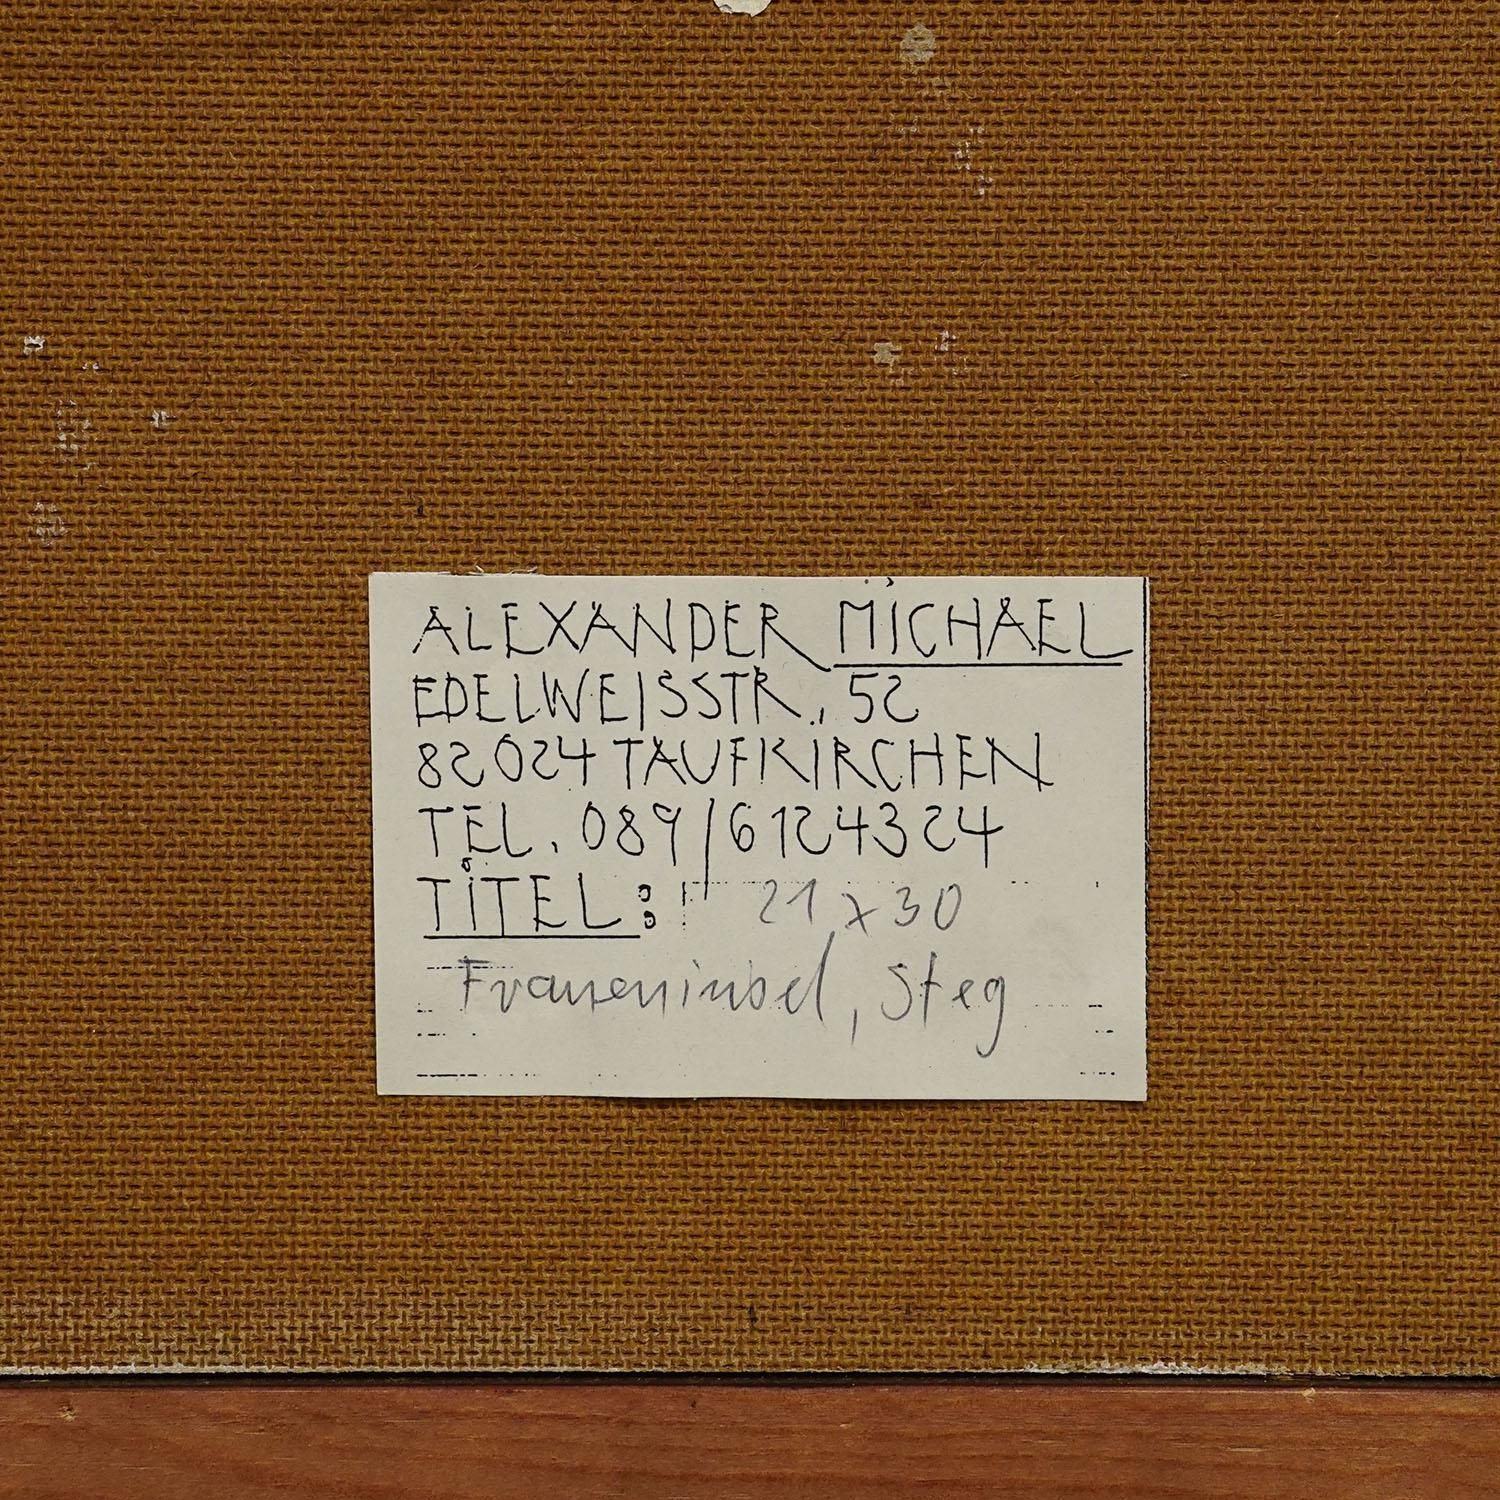 ALEXANDER MICHAEL
EDELWEISSTR. 52
82024 TAUFKIRCHEN
TEL. 089/6124324
TITEL: 21 x 30
Fraueninsel, Steg